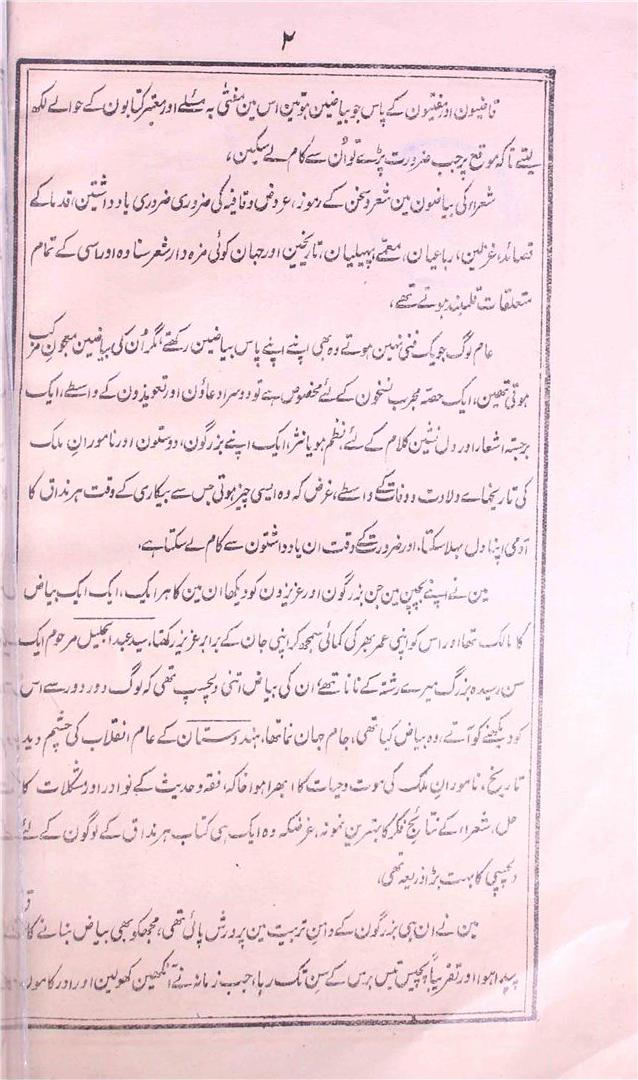 ۲
قاضیون اور مفتیون کے پاس جو بیاضین ہوتین اس مین مفتٰی بہ مسئلے اور معتبر کتابون کے حوالے لکھ
لیتے تاکہ موقع پر جب ضرورت پڑے تو اُن سے کام لے سکین،
شعراء کی بیاضون مین شعر و سخن کے رموز، عروض و قافیہ کی ضروری ضروری یادداشتین، قدما کے
قصائد، غزلین، رباعیان، معمے، پہیلیان، تاریخین اور جہان کوئی مزہ دار شعر سنا وہ اور اسی کے تمام
متعلقات قلمبند ہوتے تھے،
عام لوگ جو یک فنی نہین ہوتے وہ بھی اپنے اپنے پاس بیاضین رکھتے، مگر اُن کی بیاضین معجون مرکب
ہوتی تھین، ایک حصہ مجرب نسخون کے لئے مخصوص ہے تو دوسرا دعاؤن اور تعویذون کے واسطے، ایک
برجستہ اشعار اور دل نشین کلام کے لئے، نظم ہو یا نثر، ایک اپنے بزرگون، دوستون اور نامورانِ ملک
کی تاریخہاے ولادت و وفات کے واسطے، غرض کہ وہ ایسی چیز ہوتی جس سے بیکاری کے وقت ہر مذاق کا
آدمی اپنا دل بہلا سکتا، اور ضرورت کے وقت ان یادداشتون سے کام لے سکتا ہے،
مین نے اپنے بچپن مین جن بزرگون اور عزیزون کو دیکھا ان مین کا ہر ایک، ایک ایک بیاض
کا مالک تھا اور اس کو اپنی عمر بھر کی کمائی سمجھ کر اپنی جان کے برابر عزیز رکھتا، سید عبد الجلیل مرحوم ایک
سن رسیدہ بزرگ میرے رشتہ کے نانا تھے، ان کی بیاض اتنی دلچسپ تھی کہ لوگ دور دور سے اس
کو دیکھنے کو آتے، وہ بیاض کیا تھی، جام جہان نما تھا، ہندوستان کے عام انقلاب کی چشم دید
تاریخ، نامورانِ ملک کی موت و حیات کا ابھرا ہوا خاکہ، فقہ و حدیث کے نوادر اور مشکلات کا
حل، شعراء کے نتائجِ فکر کا بہترین نمونہ، غرضکہ وہ ایک ہی کتاب ہر مذاق کے لوگون کے لئے
دلچسپی کا بہت بڑا ذریعہ تھی،
مین نے ان ہی بزرگون کے دامنِ تربیت مین پرورش پائی تھی، مجھکو بھی بیاض بنانے کا
پیدا ہوا اور تقریباً پچیس تیس برس کے سن تک رہا، جب زمانہ نے آنکھین کھولین اور اور کامون